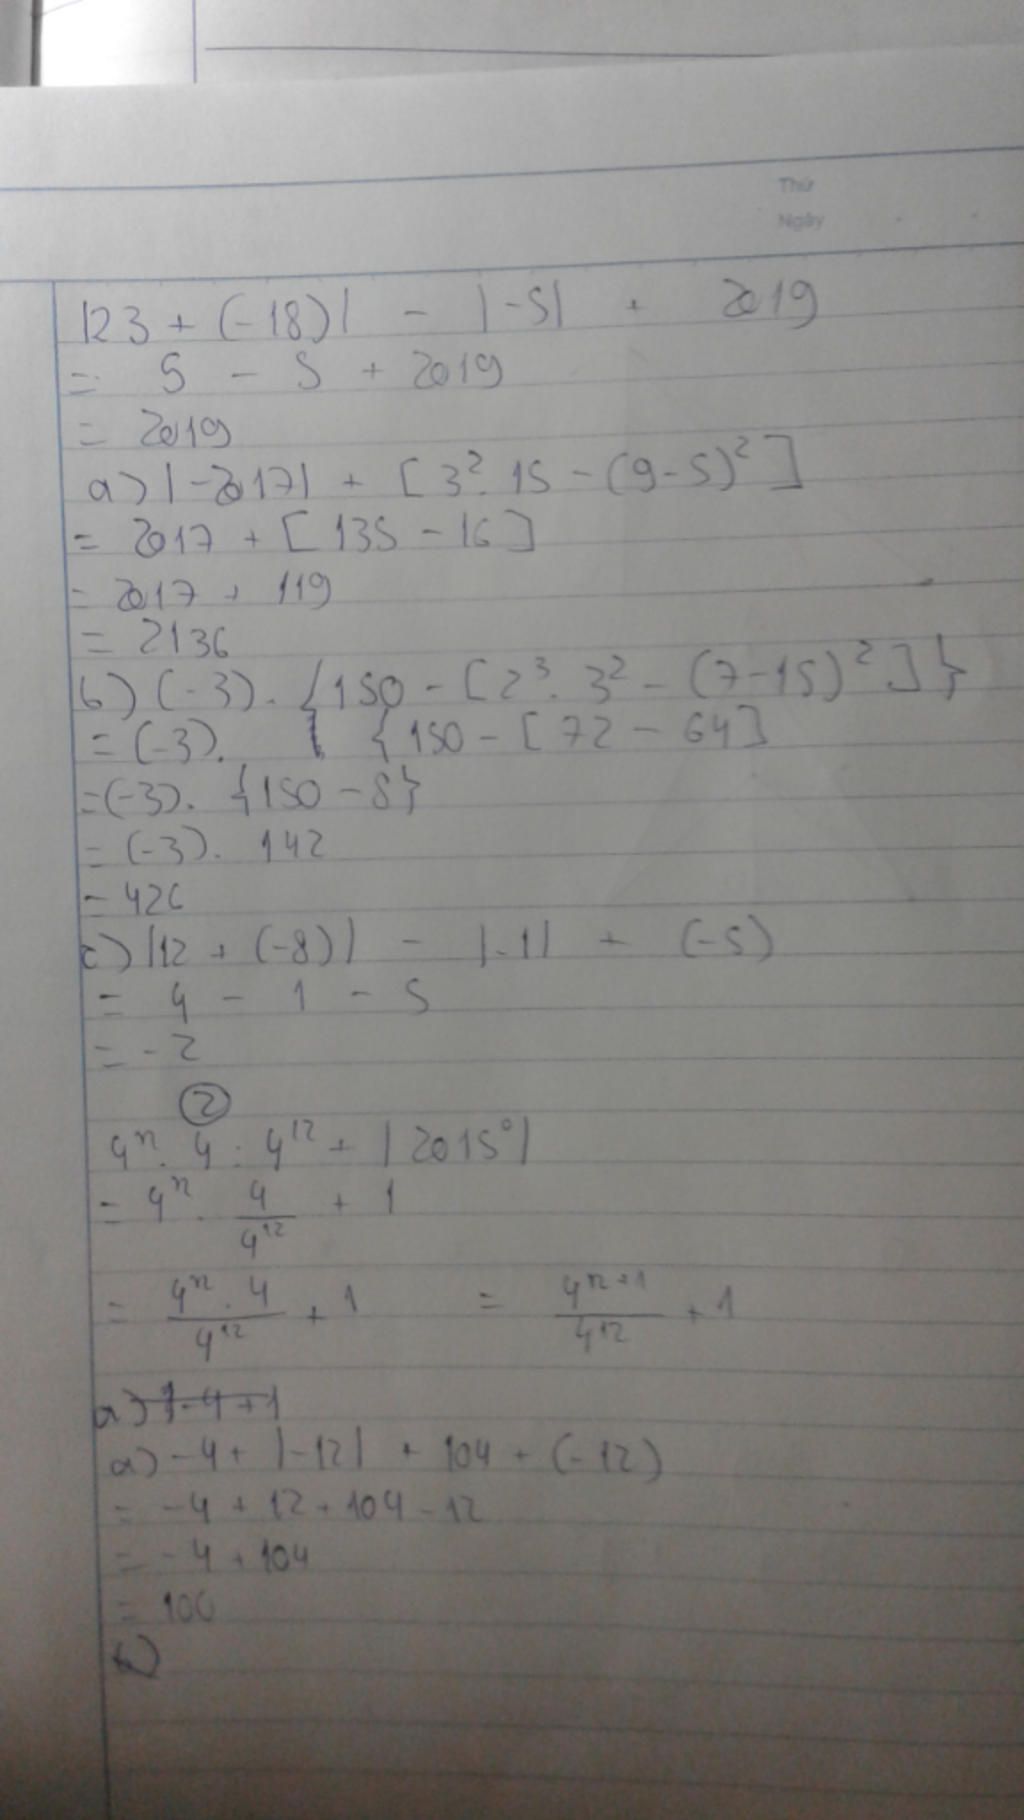 Thứ
Ngày
|23 + (-18)| - |-5| + 2019
= 5 - 5 + 2019
= 2019
a) |-2017| + [3². 15 - (9-5)²]
= 2017 + [135 - 16]
= 2017 + 119
= 2136
b) (-3). {150 - [2³. 3² - (7-15)²]}
= (-3). { {150 - [72 - 64]
= (-3). {150 - 8}
= (-3). 142
= 426
c) |12 + (-8)| - |-1| + (-5)
= 4 - 1 - 5
= -2
②
4ⁿ. 4 : 4¹² + |2015⁰|
= 4ⁿ. 4/4¹² + 1
= 4ⁿ. 4/4¹² + 1 = 4ⁿ⁺¹/4¹² + 1
a) 1-4+1
a) -4 + |-12| + 104 + (-12)
= -4 + 12 + 104 - 12
= -4 + 104
= 100
b)